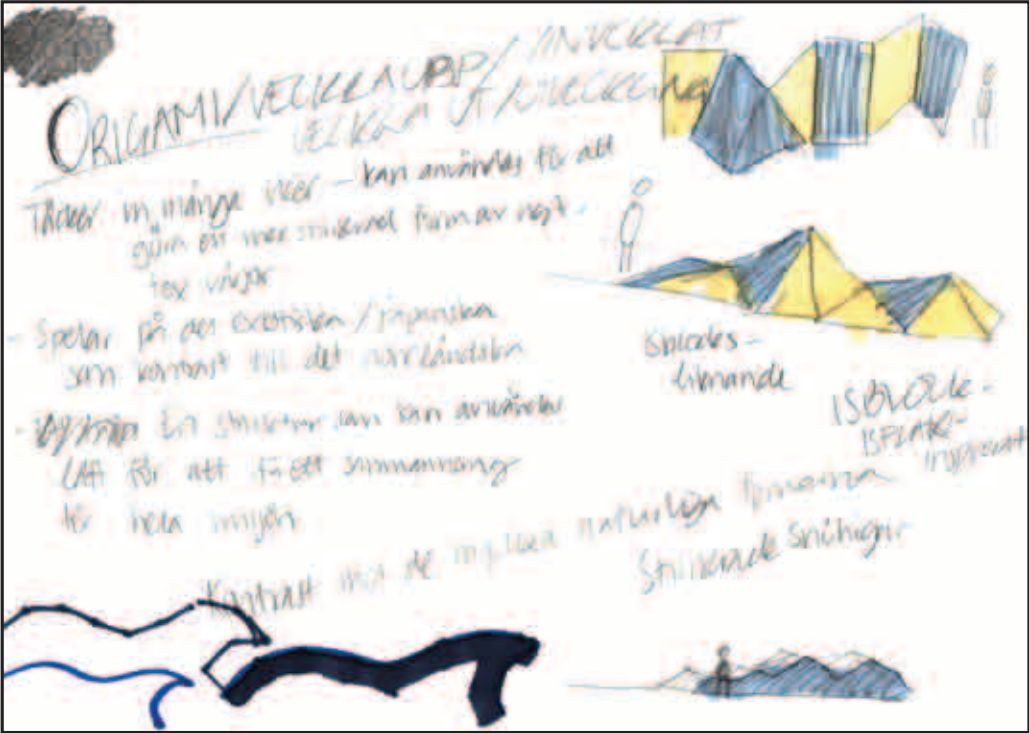 ORIGAMI/VECKLA UPP/INVECKLAT
VECKLA UT/UTVECKLING
Täcker in många idéer – kan användas för att
göra en mer stiliserad form av något
tex vågor
- Spelar på det exotiska/japanska
som kontrast till det norrländska
- En struktur som kan användas
lätt för att få ett sammanhang
för hela miljön
Kontrast mot de mjuka naturliga formerna
Isblocks-
liknande
ISBLOCK-
ISFLAK-
inspirerat
Stiliserade snöhögar